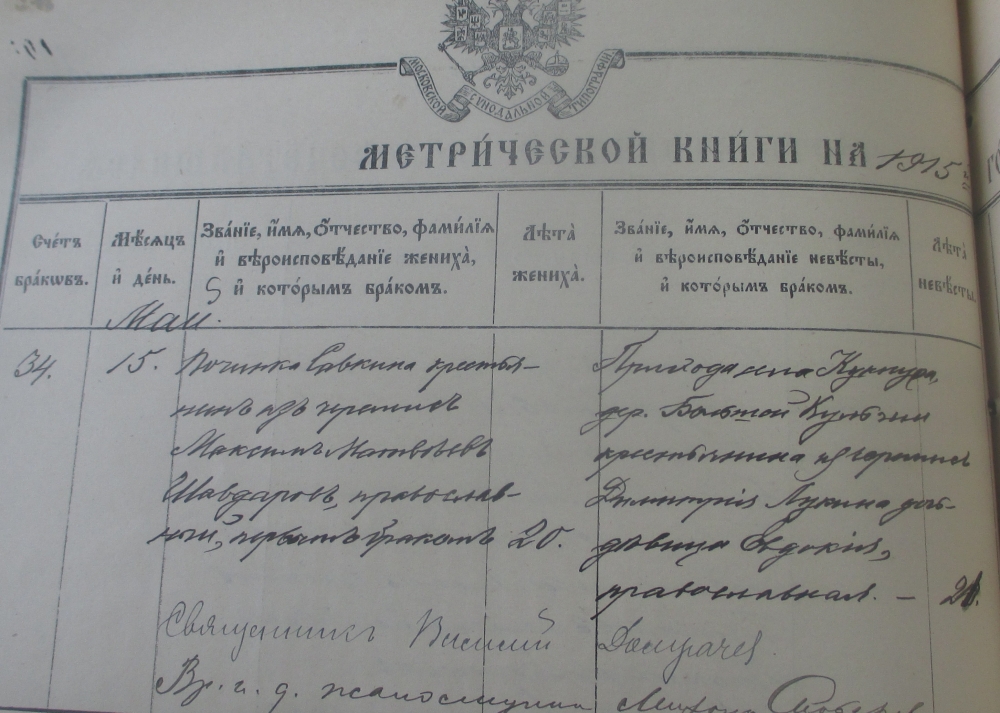 МОСКОВСКОЙ СѴНОДАЛЬНОЙ ТИПОГРАФІИ
МЕТРИ́ЧЕСКОЙ КНИ́ГИ НА 1915
Сче́тъ бра́кωвъ.
Мѣ́сяцъ и҆ де́нь.
Зва́нїе, и҆́мѧ, ѻ҆́тчество, фами́лїѧ
и҆ вѣроисповѣ́данїе жениха̀,
и҆ кото́рымъ бра́комъ.
Лѣта̀ жениха̀.
Зва́нїе, и҆́мѧ, ѻ҆́тчество, фами́лїѧ
и҆ вѣроисповѣ́данїе невѣ́сты,
и҆ кото́рымъ бра́комъ.
Лѣта̀ невѣ́сты.
Май.
34.
15.
Починка Савкина крестья-
нинъ изъ черемисъ
Максимъ Матвѣевъ
Шавдаровъ, православ-
ный, первымъ бракомъ
20.
Прихода села
дер. Большой
крестьянина из черемисъ
Димитрія Лукина дочь
дѣвица Евдокія,
православная. —
Священникъ Василій Домрачев
псаломщика